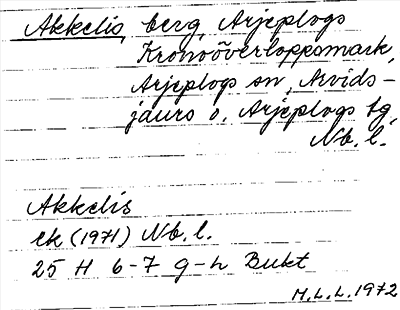 Akkelis, berg, Arjeplogs
Kronoöverloppsmark,
Arjeplogs sn, Arvids-
jaurs o. Arjeplogs tg,
Nb. l.
Akkelis
ek (1971) Nb. l.
25 H 6-7 g-h Bukt
M.L.L. 1972